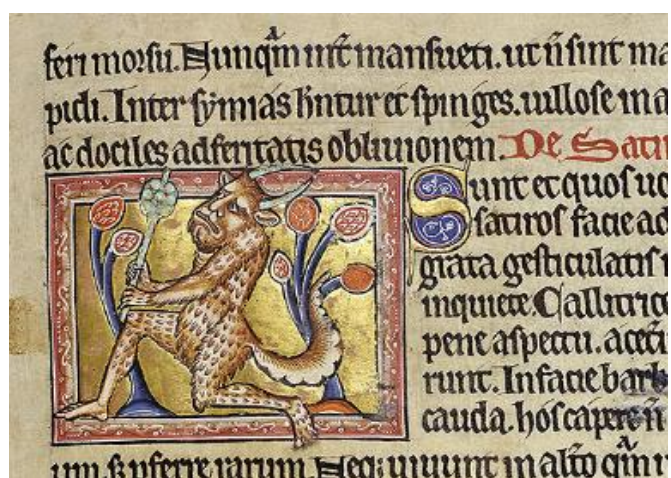 feri morsu. Nunqm ita mansueti. ut ñ sint ma
pidi. Inter symias hñtur et spinges. uillose in a
ac dociles ad feritatis obliuionem. De Sati
Sunt et quos uo
satiros facie ad
grata gesticulatis
inquiete. Callitric
pene aspectu. a cet̃i
runt. In facie barb
cauda. hos capere ñ
um. s; pferre rarum. Neq; uiuunt in alio qm i